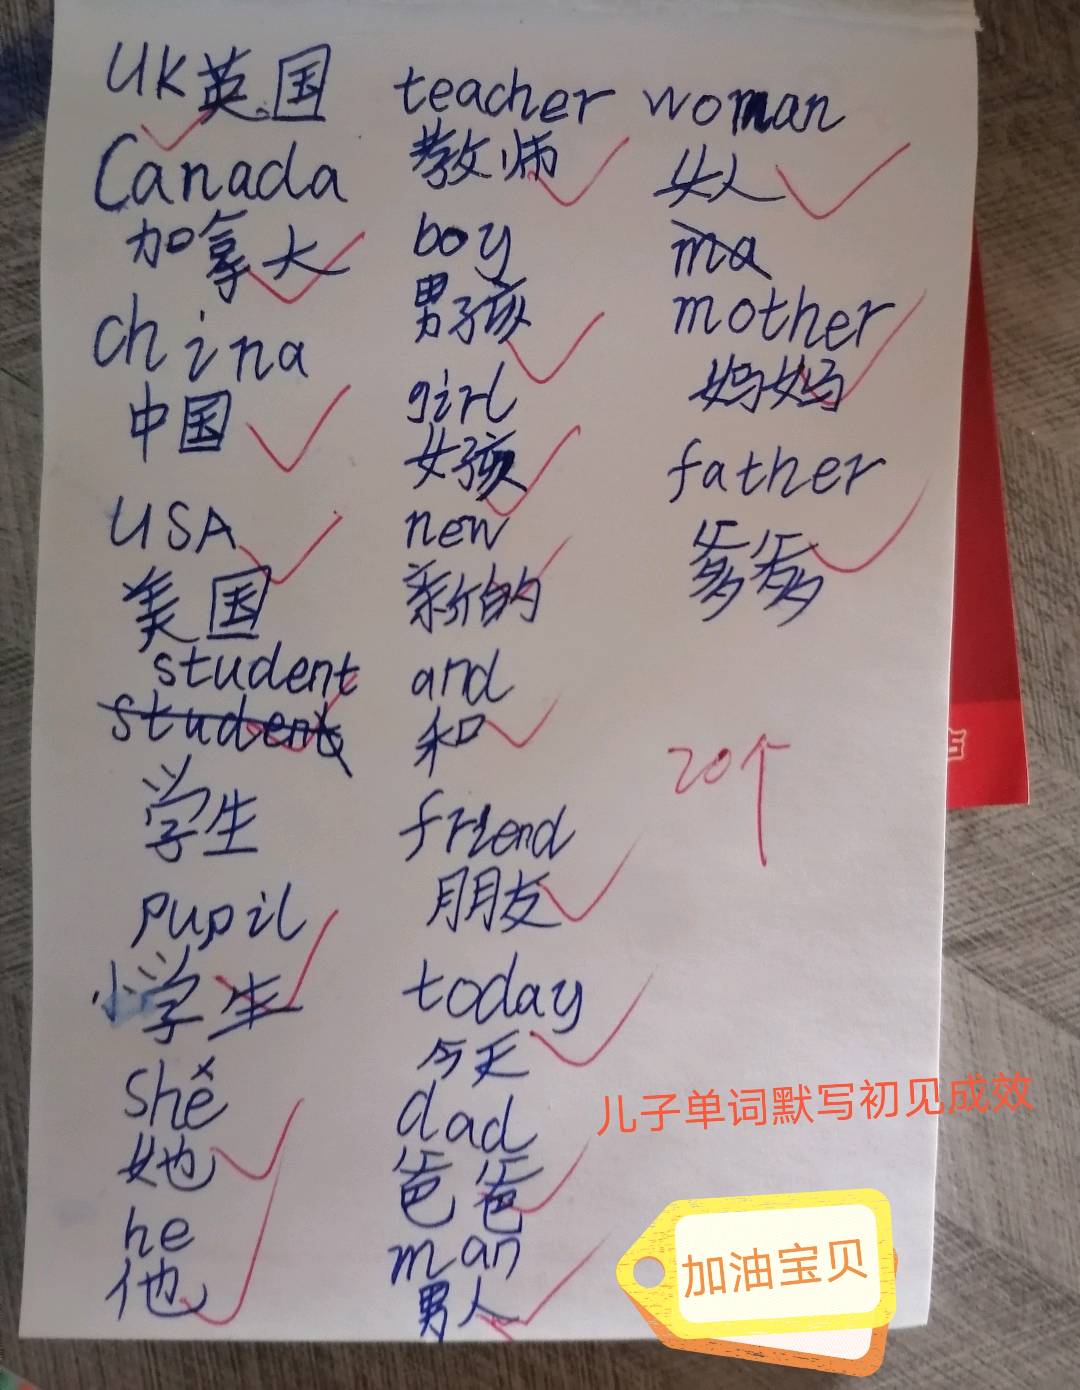 UK英国
Canada
加拿大
china
中国
USA
美国
student
student
学生
pupil
小学生
she
她
he
他
teacher
教师
boy
男孩
girl
女孩
new
新的
and
和
friend
朋友
today
今天
dad
爸爸
man
男人
woman
女人
ma
mother
妈妈
father
爹爹
20个
儿子单词默写初见成效
加油宝贝